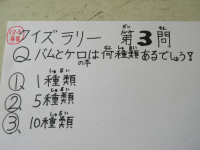 クイズラリー 第3問
Q バムとケロの本は何種類あるでしょう?
① 1種類
② 5種類
③ 10種類